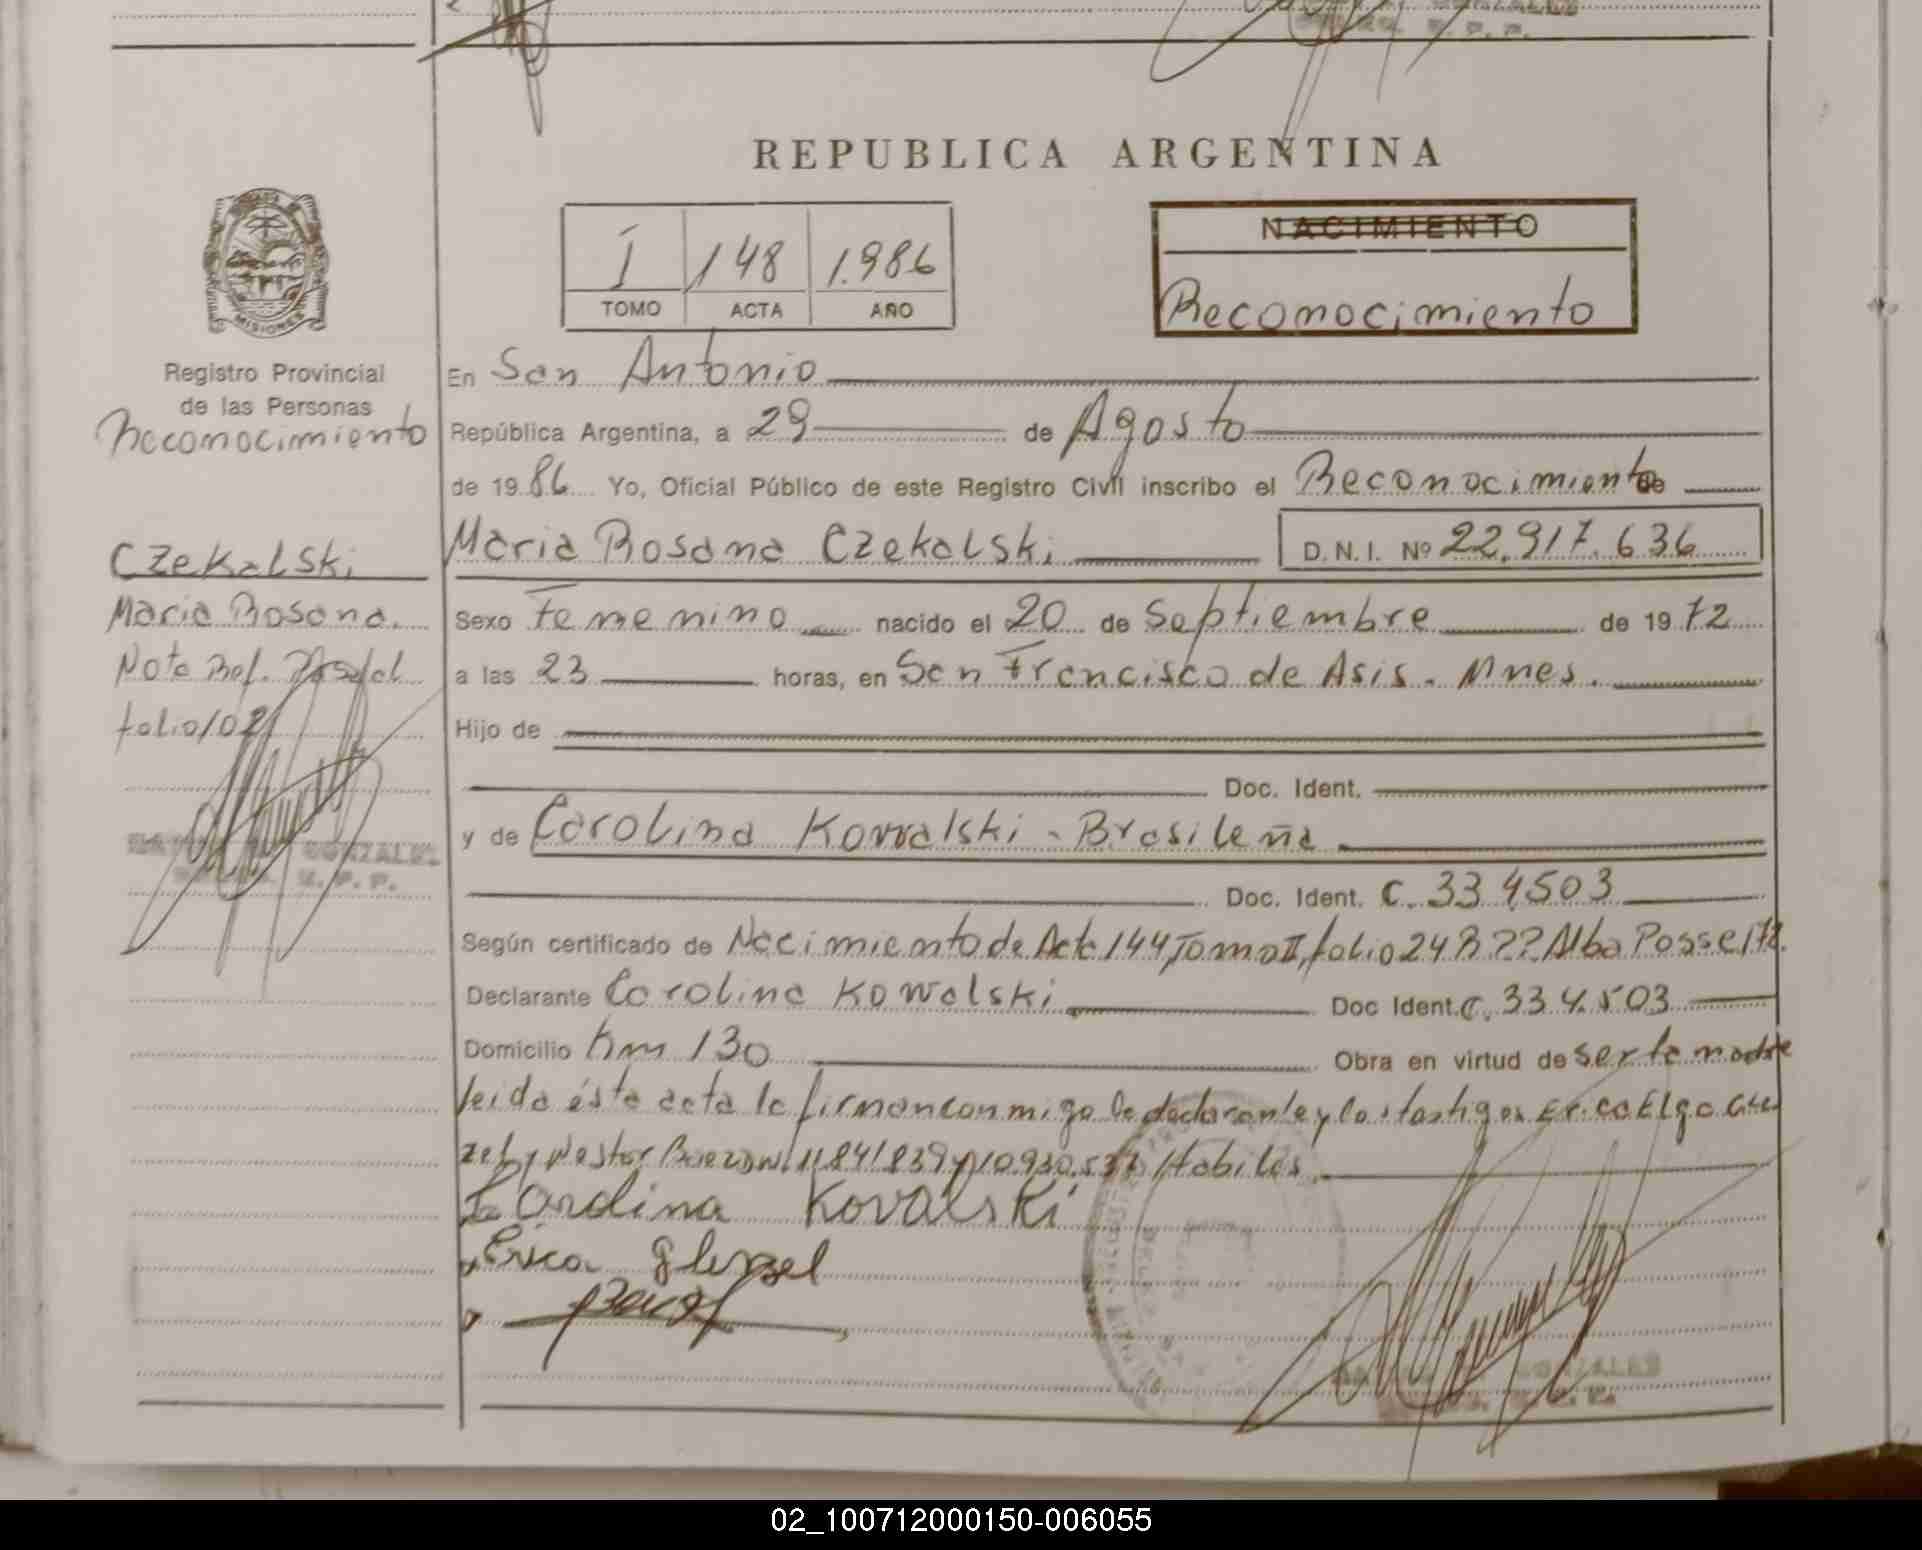 REPUBLICA ARGENTINA
MISIONES
Registro Provincial
de las Personas
Reconocimiento
Czekalski
Maria Rosana.
Nota Ref.
folio 102
GONZALES
I 148 1.986
TOMO ACTA AÑO
NACIMIENTO
Reconocimiento
En San Antonio
República Argentina, a 29 de Agosto
de 1986 Yo, Oficial Público de este Registro Civil inscribo el Reconocimiento de
Maria Rosana Czekalski D.N.I. Nº 22.917.636
Sexo Femenino nacido el 20 de Septiembre de 1972
a las 23 horas, en San Francisco de Asis. Mnes.
Hijo de
Doc. Ident.
y de Carolina Kowalski - Brasileña
Doc. Ident. C. 334503
Según certificado de Nacimiento de Acta 144, Tomo II, folio 24 Alba Posse 172.
Declarante Carolina Kowalski Doc Ident. C. 334.503
Domicilio Km 130 Obra en virtud de ser la madre
leida ésta acta la firman conmigo la declarante y los testigos Erica Elga Glen
zel y Nestor Baez 11841839 y 10.930.537 Habiles
Carolina Kovalski
Erica Glenzel
GONZALES
02_100712000150-006055